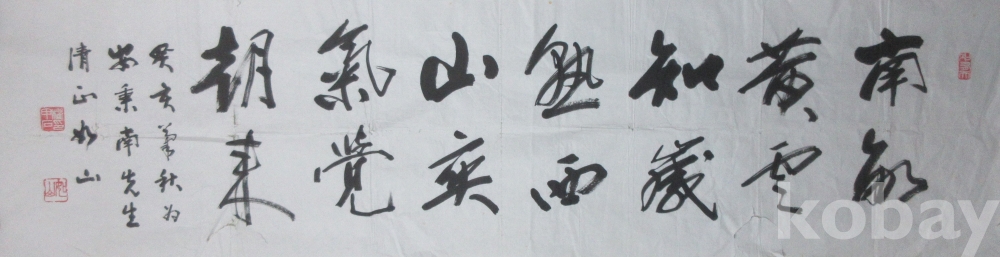 南畝
黃雲
知歲
熟西
山爽
氣覺
朝來
癸亥秋为
安秉南先生
清正如山
kobay